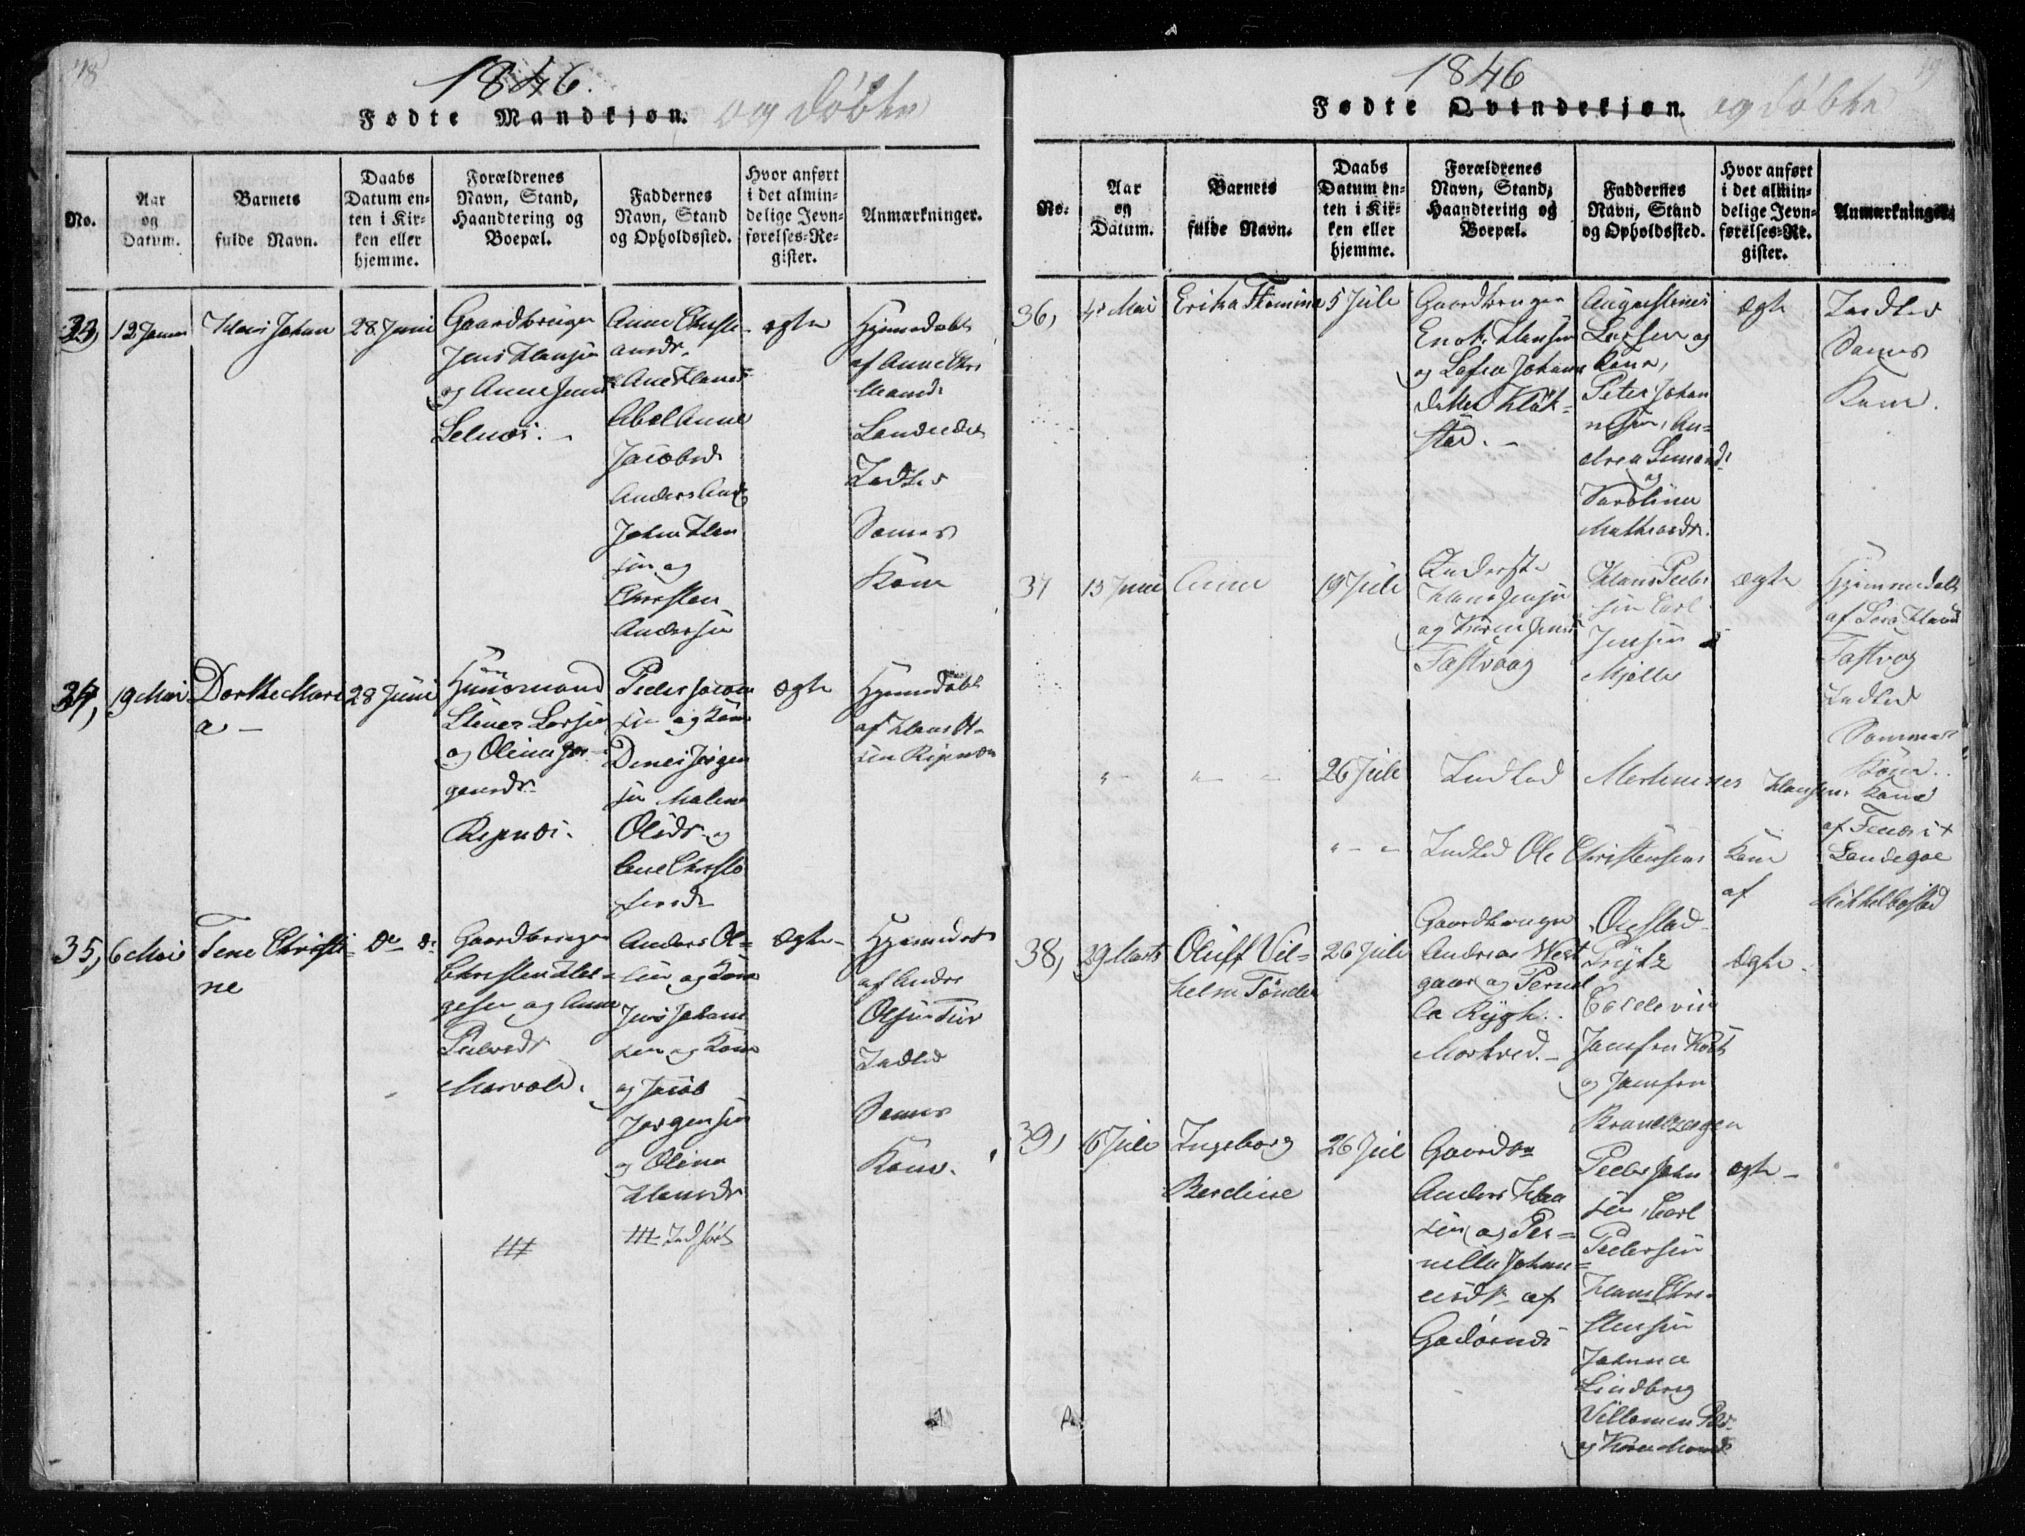 18
1846.
Fødte Mandkjøn. og døbte
No.
Aar
og
Datum.
Barnets
fulde Navn.
Daabs
Datum en-
ten i Kir-
ken eller
hjemme.
Forældrenes
Navn, Stand,
Haandtering og
Boepæl.
Faddernes
Navn, Stand
og Opholdssted.
Hvor anført
i det almin-
delige Jevn-
førelses-Re-
gister.
Anmærkninger.
33,
12 Januar
Hans Johan
28 Juni
Gaardbruger
Jens Hansen
og Anne Jensd
Selnæs.
Anne Christi-
ansdr.
Ane Hansd
Abel Anne
Jacobsd
Anders And
Johan Han
sen og
Christen
Andersen
ægte
Hjemedøbt
af Anne Chri
stiansd
Indled
Somes
Kone
34,
19 Mai
Dorthe Mari
a
28 Juni
Huusmand
Stener Larsen
og Olina Jør-
gensdr
Ripnæs.
Peder Jacob
sen og Kone
Denes Jørgen
sen Malena
Olsdr og
Ane Christo
fersdr
Ægte
Hjemedøbt
af Hans Ol-
sen Ripnæs
35,
6 Mai
Tene Christi-
ne
Do Do
Gaardbruger
Christen Hel-
gesen og Anne
Pedersdr
Marvold.
Anders Ol-
sen og Kone
Jens Johan
sen og Kone
og Jacob
Jørgensen
og Olina
Hansdr
Ægte
Hjemedøbt
af Anders
Olsen
Indled
Somes
Kone.
Indført
19
1846
Fødte Qvindekjøn. og døbte
No.
Aar
og
Datum.
Barnets
fulde Navn.
Daabs
Datum en-
ten i Kir-
ken eller
hjemme.
Forældrenes
Navn, Stand,
Haandtering og
Boepæl.
Faddernes
Navn, Stand
og Opholdssted.
Hvor anført
i det almin-
delige Jevn-
førelses-Re-
gister.
Anmærkninger.
36,
4 Mai
Erika
5 Juli
Gaardbruger
Enok Hansen
og Johans
datter Kløk-
stad.
Augustinus
Larsen og
Kone,
Peter Johan
nesen, An-
drea Simonsd
og
Karoline
Mathiasdr.
Ægte
Indled
Somes
Kone.
37
13 Juni
Anne
19 Juli
Inderste
Hans Jensen
og Karen Jensd
Fastvaag
Hans Peder
sen Carl
Jensen
Mjelle
Ægte
Hjemmedøbt
af Hansd
Fastvog
Indled
Sammes
Kone.
26 Juli
Indled Mortenuses Hansens Kone
af
Indled Ole Christensens Kone
af
Landegoe
Mikkelbostad
38,
29 Marts
Oluff Vil-
helm Tønder
26 Juli
Gaardbruger
Andreas West
gaar og Pernil
la Rygh.
Mørkved.
Prytz
Coldevin
Jomfru Koch
og Jomfru
Brandtzægen
Ægte
39,
6 Juli
Ingeborg
Berdine
26 Juli
Gaardm
Anders Han
sen og Per-
nilla Johan-
nesdr af
Godøenæs
Peder John
sen, Carl
Pedersen
Hans Chri-
stensen
Johanna
Lindberg
Villumsen
og Karen
ægte